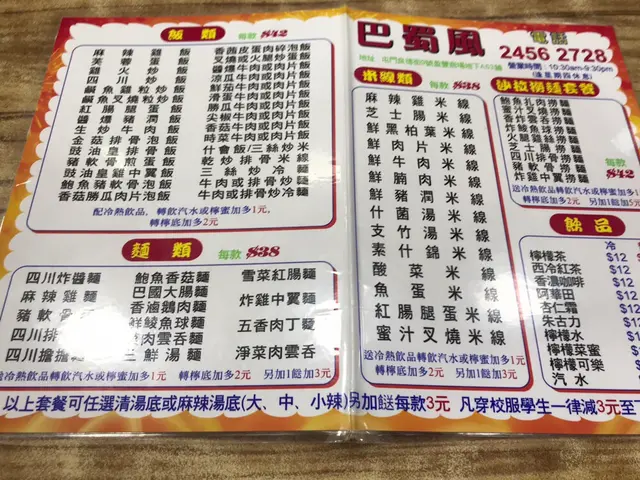 飯 類 每款 $42
麻辣雞飯
芙蓉蛋飯
雞火炒飯
四川炒飯
鹹魚雞粒炒飯
鹹魚叉燒粒炒飯
紅腸腿蛋飯
醬爆豬潤飯
生炒牛肉飯
金菇排骨飯
豉油皇排骨飯
豬軟骨煎蛋飯
豉油皇雞中翼飯
鮑魚豬軟骨泡飯
香菇勝瓜肉片泡飯
香茜皮蛋肉碎泡飯
叉燒或火腩炒蛋飯
醬爆牛肉或肉片飯
涼瓜牛肉或肉片飯
鮮茄牛肉或肉片飯
滑蛋牛肉或肉片飯
勝瓜牛肉或肉片飯
尖椒牛肉或肉片飯
香菇牛肉或肉片飯
時菜牛肉或肉片飯
什會飯/三絲炒米
乾炒排骨米線
三絲炒冷麵
牛肉或排骨炒麵
牛肉或排骨炒飯
配冷熱飲品，轉飲汽水或檸蜜加多1元，
轉檸底加多2元
麵 類 每款 $38
四川炸醬麵
麻辣雞麵
豬軟骨
四川排
四川擔擔
鮑魚香菇麵
巴國大腸麵
香滷鵝肉麵
鮮鯪魚球麵
肉雲吞麵
三鮮湯麵
雪菜紅腸麵
炸雞中翼麵
五香肉丁麵
淨菜肉雲吞
送冷熱飲品轉飲汽水或檸蜜加多1元
轉檸底加多2元 另加1餸加3元
巴蜀風
電話
2456 2728
營業時間：10:30am-9:30pm
(逢星期四休息)
米線類 每款 $38
麻辣雞米線
芝士腸米線
鮮黑柏葉米線
鮮牛肉米線
鮮肉片米線
鮮腩肉米線
鮮豬潤米線
什菌湯米線
支竹湯米線
素什錦米線
酸菜米線
魚蛋米線
紅腸腿蛋米線
蜜汁叉燒米線
送冷熱飲品轉飲汽水或檸蜜加多1元
轉檸底加多2元 另加1餸加3元
沙拉撈麵套餐
每款 $42
送冷熱飲品轉飲汽水或檸蜜加
轉檸底加多2元
飲品
冷
檸檬茶 $12
西冷紅茶 $12
香濃咖啡 $12
阿華田 $12
杏仁霜 $12
朱古力 $12
檸檬水 $12
檸檬菜蜜 $12
檸檬可樂 $12
汽水
以上套餐可任選清湯底或麻辣湯底(大、中、小辣)另加餸每款3元 凡穿校服學生一律減3元至